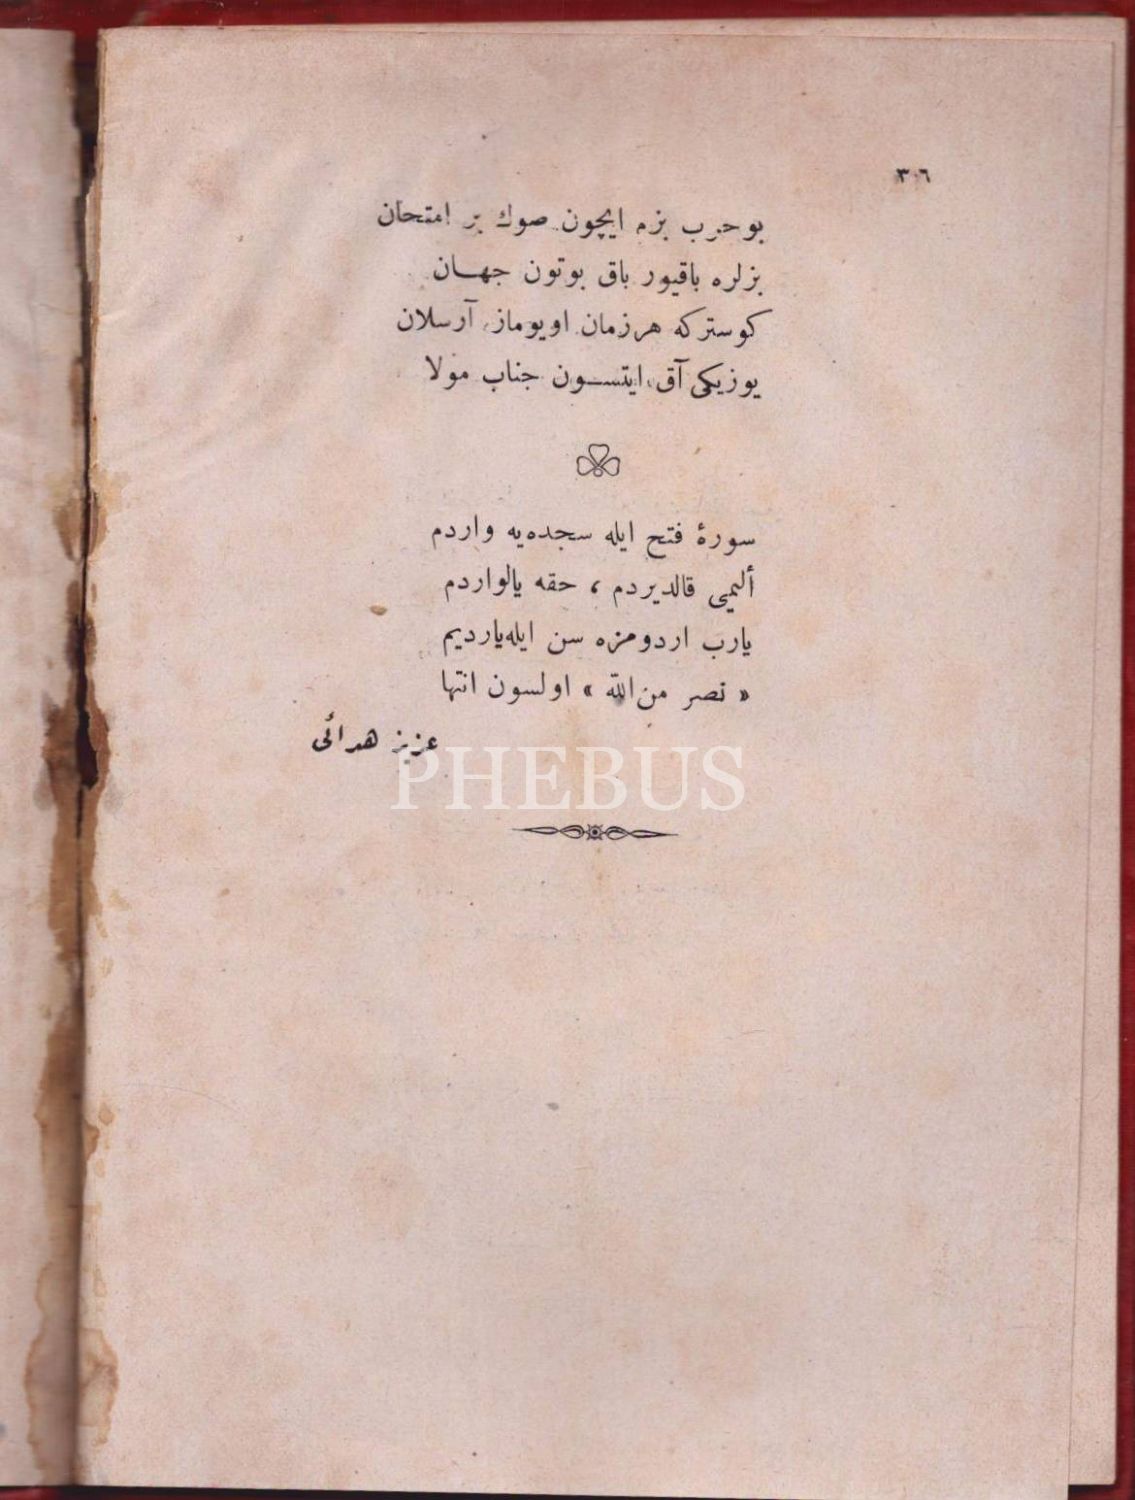 ٣٠٦
بو حرب بزم ايچون صوك بر امتحان
بزلره باقيور باق بوتون جهان
كوستركه هر زمان اويوماز آرسلان
يوزيكى آق ايتسون جناب مولا
سورۀ فتح ايله سجده‌يه واردم
أليمى قالديردم ، حقه يالواردم
يارب اردومزه سن ايله يارديم
« نصر من الله » اولسون انتها
عزيز هدائى
PHEBUS